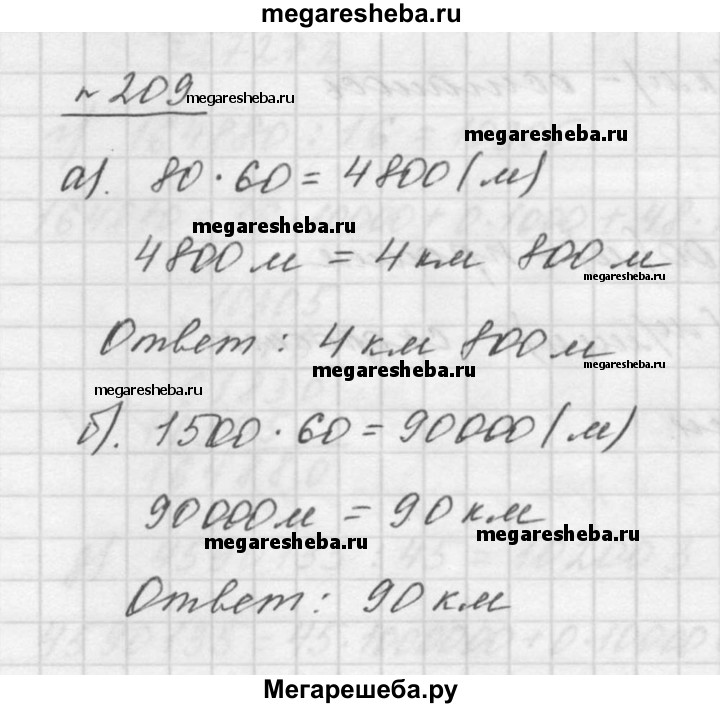 megaresheba.ru
№ 209 megaresheba.ru
megaresheba.ru
а). 80 · 60 = 4800 (м)
megaresheba.ru
4800 м = 4 км 800 м
megaresheba.ru
Ответ : 4 км 800 м
megaresheba.ru megaresheba.ru
megaresheba.ru
б). 1500 · 60 = 90000 (м)
90000 м = 90 км
megaresheba.ru megaresheba.ru
Ответ : 90 км
Мегарешеба.ру